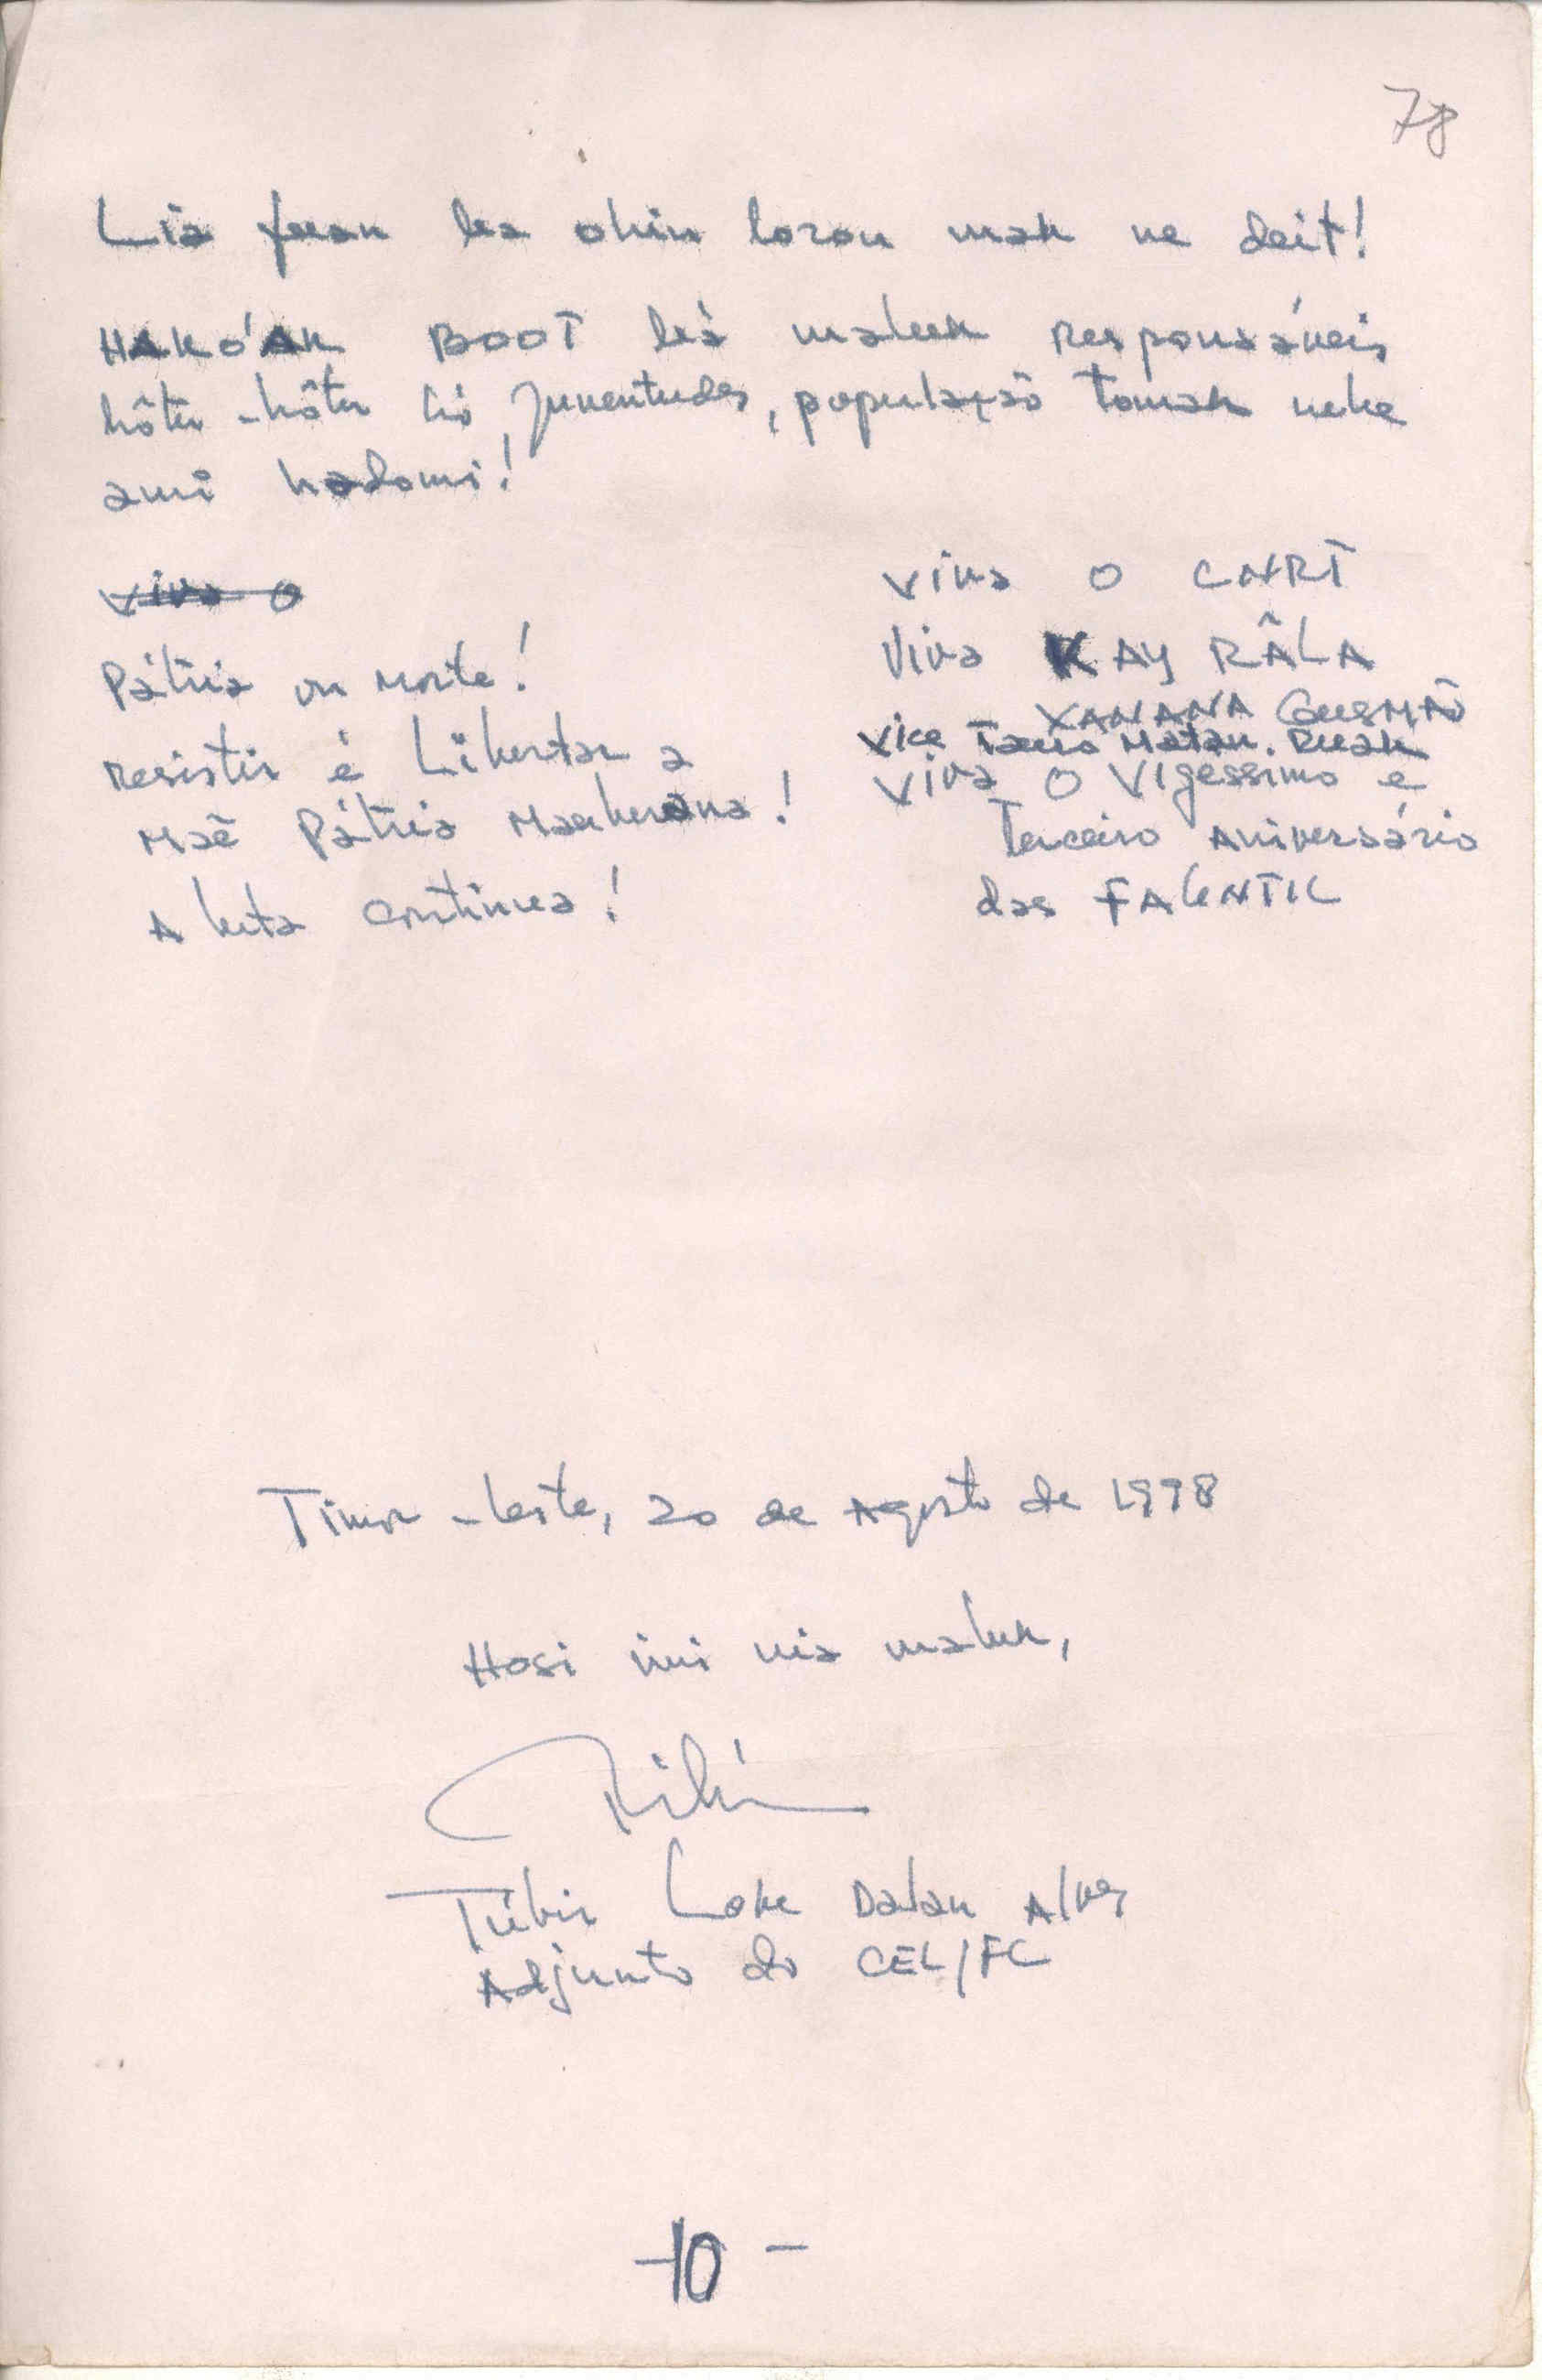 78
Lia fuan ba ohin loron mak ne deit!
HAKO'AK BOOT bá maluk Responsáveis
hôtu-hôtu hó Juventudes, população tomak nebe
ami hadomi!
Viva o
Pátria ou Morte!
Resistir é Libertar a
Maẽ Pátria Maubérana!
A luta Continua!
Viva O CNRT
Viva KAY RÂLA
XANANA GUSMÃO
Vice Taur Matan. Ruak
Viva O Vigessimo e
Terceiro Aniversário
das FALINTIL
Timor-Leste, 20 de Agosto de 1998
Hosi imi nia maluk,
Lake Dalan Alves
Adjunto do CEL/FC
-10-